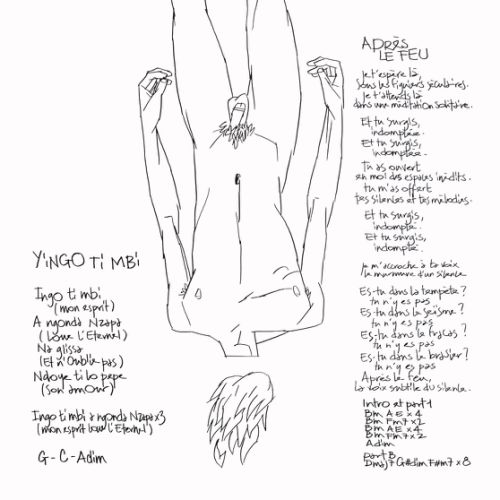 YiNGO Ti MBi
Ingo ti mbi
(mon esprit)
A ngonda Nzapa
(Loue l'Eternel)
Na glissa
(Et n'Oublie pas)
Ndoye ti lo pepe
(son amour)
Ingo ti mbi a ngonda Nzapa x3
(mon esprit loue l'Eternel)
G - C - Adim
APRÈS
LE FEU
Je t'espère là,
sous les figuiers séculaires.
Je t'attends là
dans une méditation solitaire.
Et tu surgis,
indomptée.
Et tu surgis,
indomptée.
Tu as ouvert
en moi des espaces inédits.
tu m'as offert
tes silences et tes mélodies.
Et tu surgis,
indomptée.
Et tu surgis,
indomptée.
Je m'accroche à ta voix
le murmure d'un silence.
Es-tu dans la tempête?
tu n'y es pas
Es-tu dans le séisme?
tu n'y es pas
Es-tu dans le fracas?
tu n'y es pas
Es-tu dans le brasier?
tu n'y es pas
Après le feu,
La voix subtile du silence.
Intro et part 1
Bm A E x 4
Bm F#m7 x 2
Bm A E x 4
Bm F#m7 x 2
Adim
part B
Dmaj7 G#dim F#m7 x 8